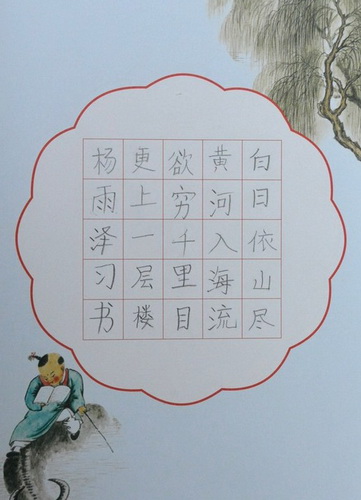 白日依山尽
黄河入海流
欲穷千里目
更上一层楼
杨雨泽习书